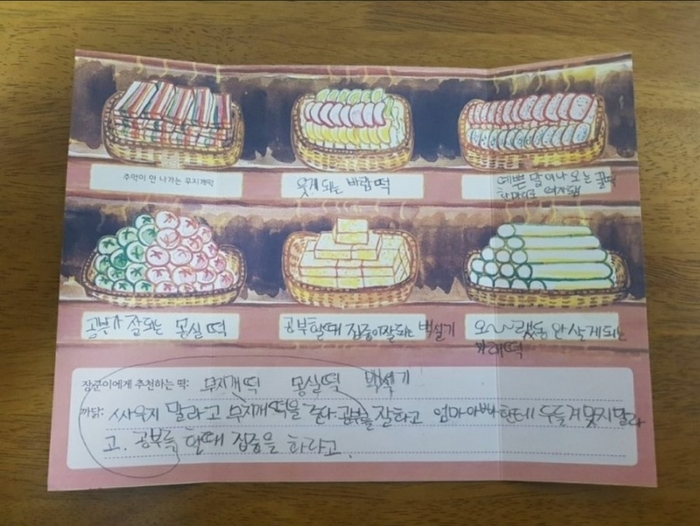 주먹이 안 나가는 무지개떡
웃게 되는 바람떡
예쁜 말이 나오는 꿀떡
공부가 잘되는 몽실 떡
공부할때 집중이잘되는 백설기
오~~랫동안 살게되는
가래떡
장군이에게 추천하는 떡: 무지개떡 몽실떡 백설기
까닭: 싸우지 말라고 무지개떡을 준다 공부를 잘하고 엄마아빠한테 두들겨 맞지말라
고. 공부를 할때 집중을 하라고.